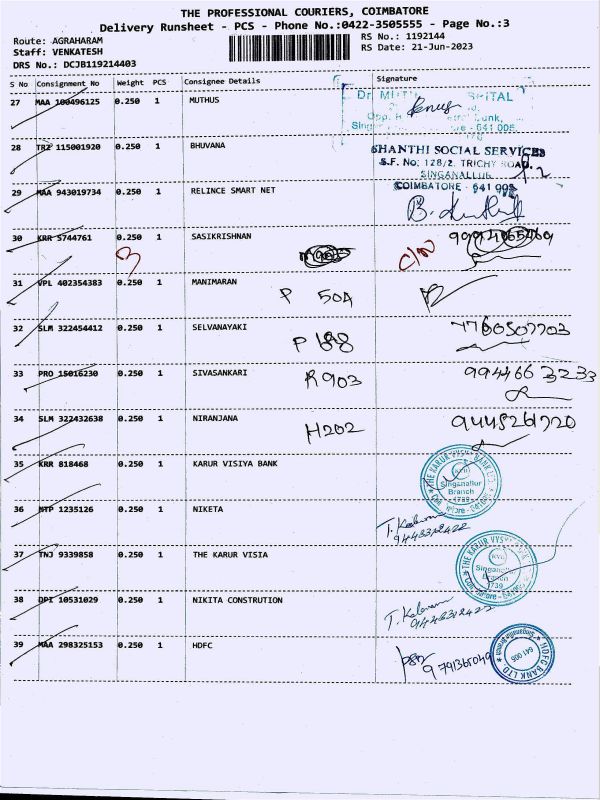 THE PROFESSIONAL COURIERS, COIMBATORE
Delivery Runsheet - PCS - Phone No.:0422-3505555 - Page No.:3
Route: AGRAHARAM
Staff: VENKATESH
DRS No.: DCJB119214403
RS No.: 1192144
RS Date: 21-Jun-2023
S No Consignment No Weight PCS Consignee Details Signature
27 MAA 100496125 0.250 1 MUTHUS
28 TRZ 115001920 0.250 1 BHUVANA
SHANTHI SOCIAL SERVICES
S.F. No: 128/2, TRICHY ROAD,
SINGANALLUR
COIMBATORE - 641 005
29 MAA 943019734 0.250 1 RELINCE SMART NET
30 KRR 5744761 0.250 1 SASIKRISHNAN
31 VPL 402354383 0.250 1 MANIMARAN
P 50A
32 SLM 322454412 0.250 1 SELVANAYAKI
33 PRO 15016230 0.250 1 SIVASANKARI
R903 994466 3233
34 SLM 322432638 0.250 1 NIRANJANA
H202 9445261720
35 KRR 818468 0.250 1 KARUR VISIYA BANK
THE KARUR VYSYA BANK LTD.
Singanallur
Branch
1739
36 MTP 1235126 0.250 1 NIKETA
37 TNJ 9339858 0.250 1 THE KARUR VISIA
THE KARUR VYSYA BANK
Singanallur
Branch
1739
38 OPI 10531029 0.250 1 NIKITA CONSTRUTION
39 MAA 298325153 0.250 1 HDFC
HDFC BANK LTD.
641 005